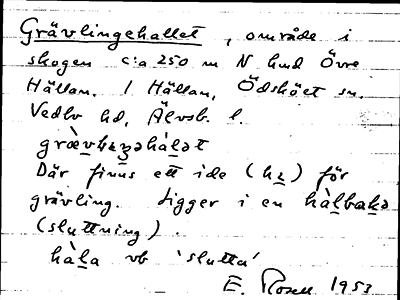 Grävlingehallet, område i
skogen c:a 250 m N hmd Övre
Hällan. 1 Hällan, Ödsköet sn.
Vedbo hd, Älvsb. l.
Där finns ett ide (hz) för
grävling. Ligger i en hàlbakə
(sluttning).
hàla vb 'slutta'
E. Rosell 1953